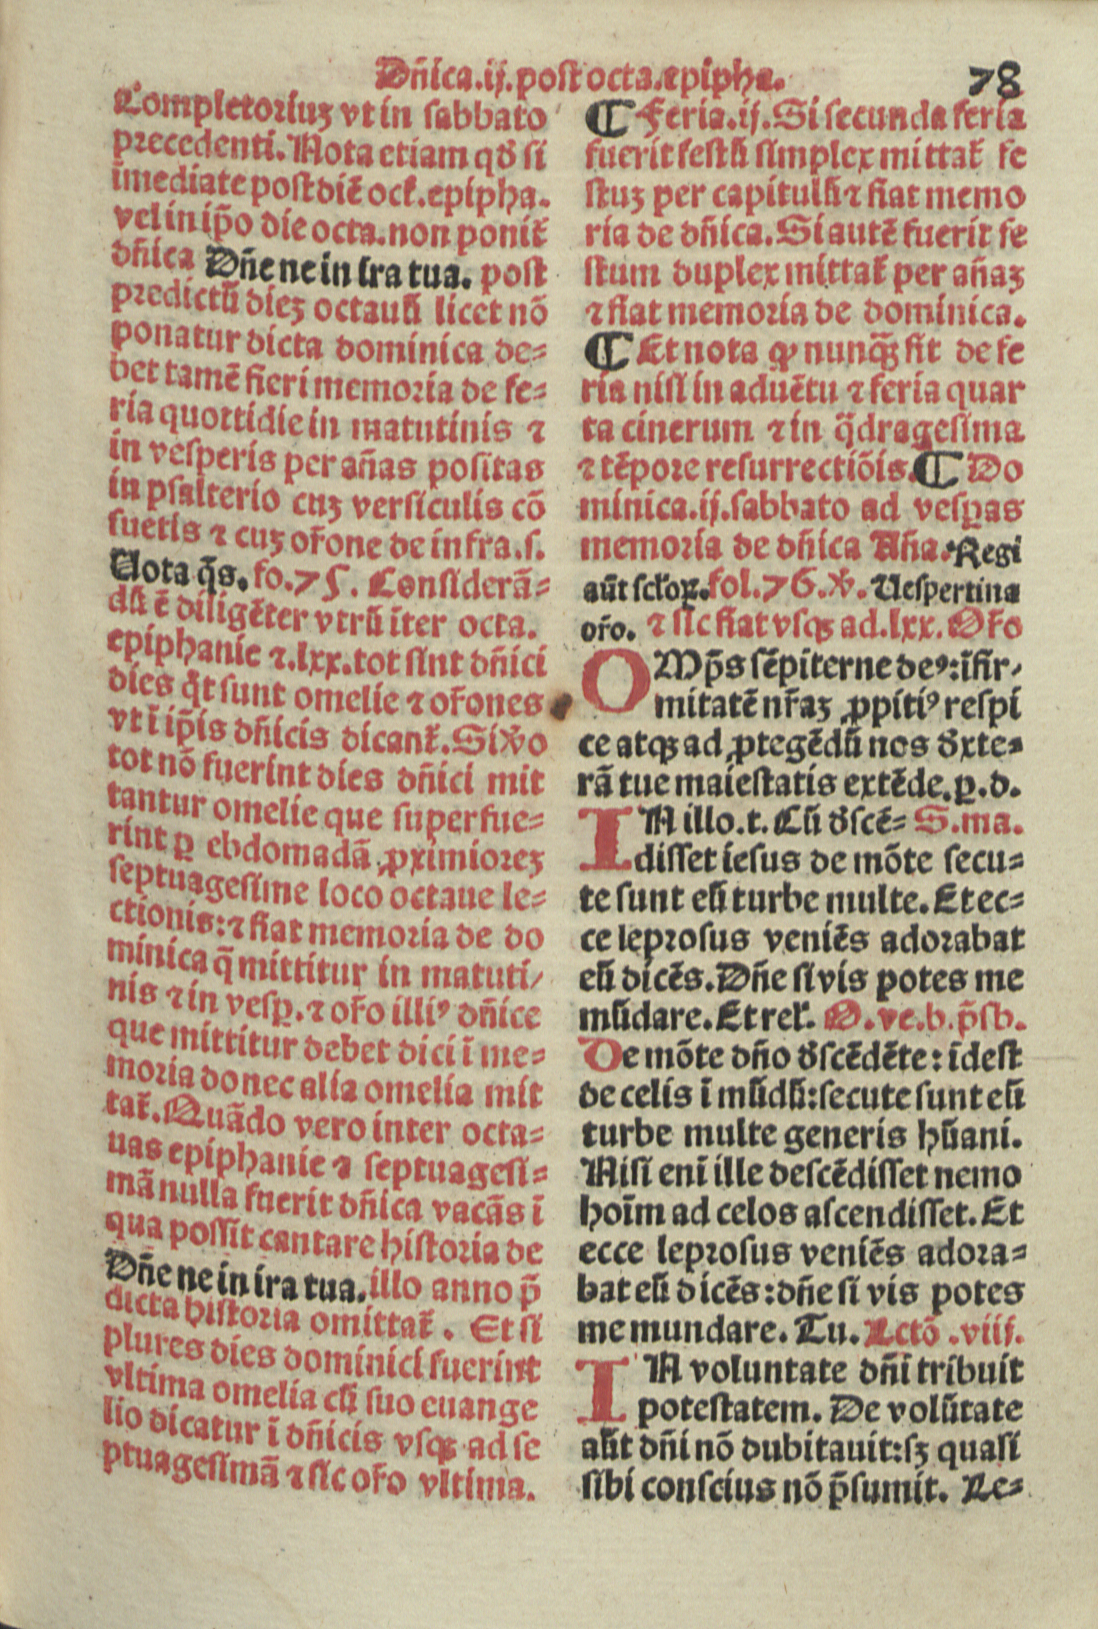 Dñica.ij.post octa.epipha. 78
Completoriuʒ vt in sabbato
precedenti. Nota etiam qď si
īmediate post diē oct̄.epipha.
vel in ip̄o die octa. non ponit̄
dñica Dñe ne in ira tua. post
predictū dieʒ octauū licet nō
ponatur dicta dominica de=
bet tamē fieri memoria de fe=
ria quottidie in matutinis ⁊
in vesperis per añas positas
in psalterio cuʒ versiculis cō
suetis ⁊ cuʒ or̄one de infra.s.
Nota q̄s. fo.75. Considerā=
dū ē diligēter vtrū iter octa.
epiphanie ⁊.lxx.tot sint dñici
dies q̄t sunt omelie ⁊ or̄ones
vt ī ip̄is dñicis dicant̄. Si v̄o
tot nō fuerint dies dñici mit
tantur omelie que superfue=
rint ꝑ ebdomadā ꝓximioreʒ
septuagesime loco octaue le=
ctionis:⁊ fiat memoria de do
minica q̄ mittitur in matuti/
nis ⁊ in vesꝑ.⁊ or̄o illiꝰ dñice
que mittitur debet dici ī me=
moria donec alia omelia mit
tat̄. Quādo vero inter octa=
uas epiphanie ⁊ septuagesi=
mā nulla fuerit dñica vacās ī
qua possit cantare historia de
Dñe ne in ira tua. illo anno p̄
dicta historia omittat̄. Et si
plures dies dominici fuerint
vltima omelia cū suo euange
lio dicatur ī dñicis vsqꝫ ad se
ptuagesimā ⁊ sic or̄o vltima.
¶ Feria.ij. Si secunda feria
fuerit festū simplex mittat̄ fe
stuʒ per capitulū ⁊ fiat memo
ria de dñica. Si autē fuerit fe
stum duplex mittat̄ per añaʒ
⁊ fiat memoria de dominica.
¶ Et nota ꝙ nunq̄ʒ fit de fe
ria nisi in aduētu ⁊ feria quar
ta cinerum ⁊ in q̄dragesima
⁊ tēpore resurrectiōis. ¶ Do
minica.ij.sabbato ad vesꝑas
memoria de dñica Aña. Regi
aūt sc̄loꝝ. fol.76.v̄. Uespertina
or̄o. ⁊ sic fiat vsqꝫ ad.lxx. Or̄o
OMp̄s sēpiterne deꝰ:īfir/
mitatē nr̄aʒ ꝓpitiꝰ respi
ce atqꝫ ad ꝓtegēdū nos ďxte=
rā tue maiestatis extēde.ꝑ.d.
IN illo.t. Cū ďscē= S.ma.
disset iesus de mōte secu=
te sunt eū turbe multe. Et ec=
ce leprosus veniēs adorabat
eū dicēs. Dñe si vis potes me
mūdare. Et rel̄. O.ve.b.p̄sb.
De mōte dño ďscēdēte: īdest
de celis ī mūdū:secute sunt eū
turbe multe generis hūani.
Nisi enī ille descēdisset nemo
hoīm ad celos ascendisset. Et
ecce leprosus veniēs adora=
bat eū dicēs:dñe si vis potes
me mundare. Tu. Lctō .viij.
IN voluntate dñi tribuit
potestatem. De volūtate
aūt dñi nō dubitauit:sʒ quasi
sibi conscius nō p̄sumit. Le=